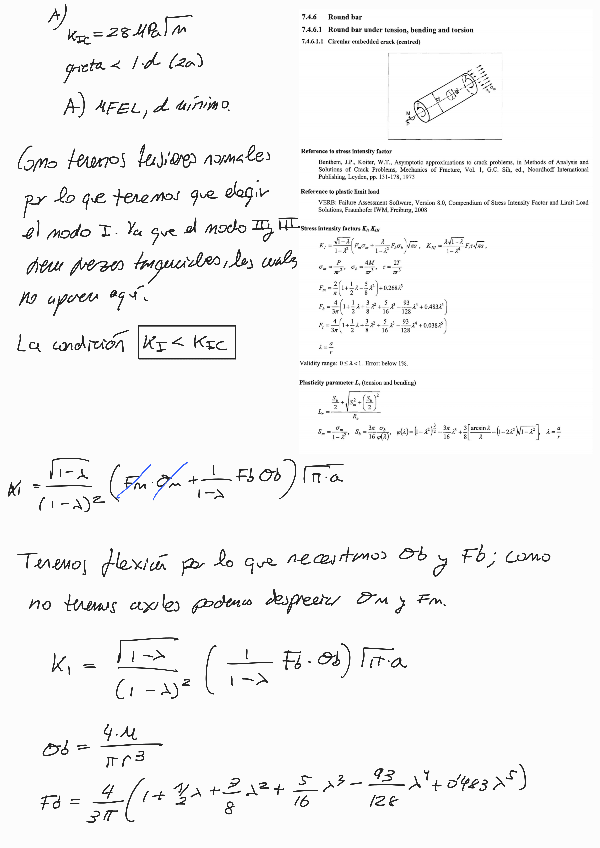 A)
K_IC = 28 MPa√m
grieta < 1·d (2a)
A) MFEL, d mínimo.
Como tenemos tensiones normales
por lo que tenemos que elegir
el modo I. Ya que el modo II y III
tiene piezas tangenciales, las cuales
no aparecen aquí.
La condición K_I < K_IC
7.4.6 Round bar
7.4.6.1 Round bar under tension, bending and torsion
7.4.6.1.1 Circular embedded crack (centred)
Reference to stress intensity factor
Benthem, J.P., Koiter, W.T., Asymptotic approximations to crack problems, in Methods of Analysis and
Solutions of Crack Problems, Mechanics of Fracture, Vol. 1, G.C. Sih, ed., Noordhoff International
Publishing, Leyden, pp. 131-178, 1973
Reference to plastic limit load
VERB: Failure Assessment Software, Version 8.0, Compendium of Stress Intensity Factor and Limit Load
Solutions, Fraunhofer IWM, Freiburg, 2008
Stress intensity factors K_I, K_III
σ_m = P/πr², σ_b = 4M/πr³, τ = 2T/πr³
F_m = 2/π (1 + 1/2 λ − 5/8 λ²) + 0.268λ³
F_b = 4/3π (1 + 1/2 λ + 3/8 λ² + 5/16 λ³ − 93/128 λ⁴ + 0.483λ⁵)
F_t = 4/3π (1 + 1/2 λ + 3/8 λ² + 5/16 λ³ − 93/128 λ⁴ + 0.038λ⁵)
λ = a/r
Validity range: 0 ≤ λ < 1. Error: below 1%.
Plasticity parameter L_r (tension and bending)
K₁ = √(1−λ)/(1−λ)² (Fm·σm + 1/(1−λ) Fb σb) √(π·a)
Tenemos flexión por lo que necesitamos σb y Fb; como
no tenemos axiles podemos despreciar σm y Fm.
K₁ = √(1−λ)/(1−λ)² (1/(1−λ) Fb·σb) √(π·a)
σb = 4·M/πr³
Fb = 4/3π (1 + 1/2 λ + 3/8 λ² + 5/16 λ³ − 93/128 λ⁴ + 0'483 λ⁵)